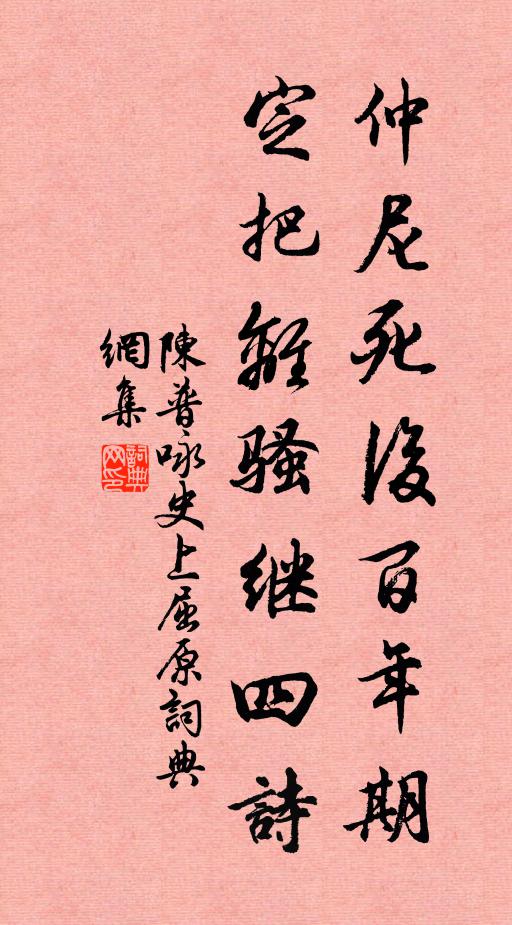 仲尼死後百年期
定把離騷继四詩
陳普咏史上屈原詞典
網集
詞典网印